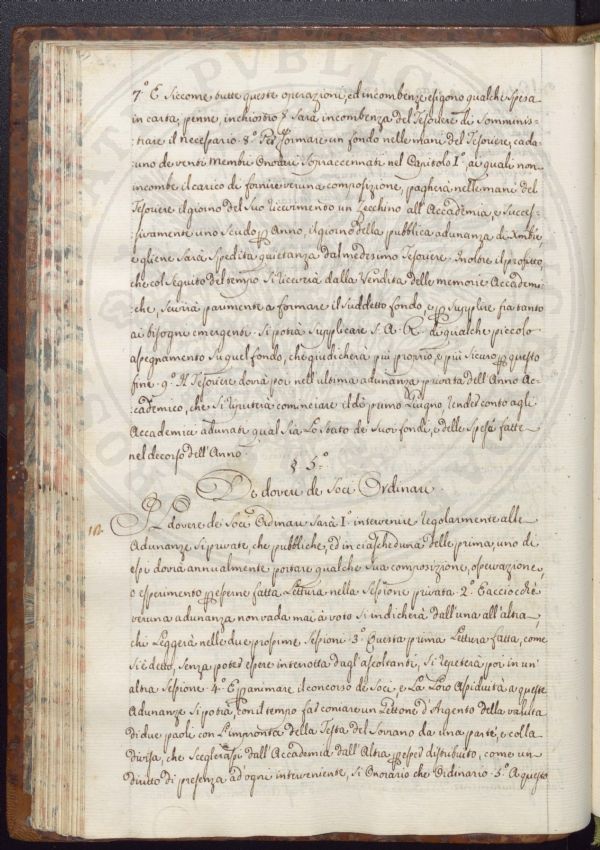 7.º E siccome tutte queste operazioni, ed incombenze esigono qualche spesa
in carta, penne, inchiostro & sarà incombenza del Tesoriere di somminis=
=trare il necessario. 8.º Per formare un fondo nelle mani del Tesoriere, cada=
=uno de venti membri Onorari sopraccennati nel Capitolo I.º ai quali non
incombe il carico di fornire veruna composizione, pagherà nelle mani del
Tesoriere il giorno del suo ricevimento un Zecchino all'Accademia, e succes=
=sivamente uno scudo per Anno, il giorno della pubblica adunanza di Xmbre
e gliene sarà spedita quietanza dal medesimo Tesoriere. Inoltre il profitto,
che col seguito del tempo si ricaverà dalla vendita delle memorie Accademi=
=che, servirà parimente a formare il suddetto fondo, e per supplire fra tanto
ai bisogni emergenti si potrà supplicare S. A. R. di qualche piccolo
assegnamento su quel fondo, che giudicherà più proprio, e più sicuro per questo
fine. 9.º Il Tesoriere dovrà poi nell'ultima adunanza privata dell'Anno Ac=
=cademico, che si reputerà cominciare il dì primo Giugno, render conto agli
Accademici adunati qual sia lo stato de suoi fondi, e delle spese fatte
nel decorso dell'Anno
§ 5.º
De doveri de Soci Ordinari.
Il dovere de Soci Ordinari sarà I.º intervenire regolarmente alle
Adunanze si private, che pubbliche, ed in ciascheduna delle prime, uno di
essi dovrà annualmente portare qualche sua composizione, osservazione,
o esperimento per esserne fatta Lettura nella sessione privata. 2.º E acciocchè
veruna adunanza non vada mai à voto si indicherà dall'una all'altra,
chi leggerà nelle due prossime sessioni. 3.º Questa prima Lettura fatta, come
si è detto, senza poter essere interrotta dagl'ascoltanti, si repeterà poi in un'
altra sessione. 4.º E per animare il concorso de Soci, e la loro assiduità a queste
Adunanze si potrà, con il tempo far coniare un Gettone d'Argento della valuta
di due paoli con l'impronta della Testa del Sovrano da una parte, e colla
divisa, che sceglierassi dall'Accademia dall'altra per esser distribuito, come un
diritto di presenza ad ogni interveniente, si Onorario che Ordinario. 5.º A questo